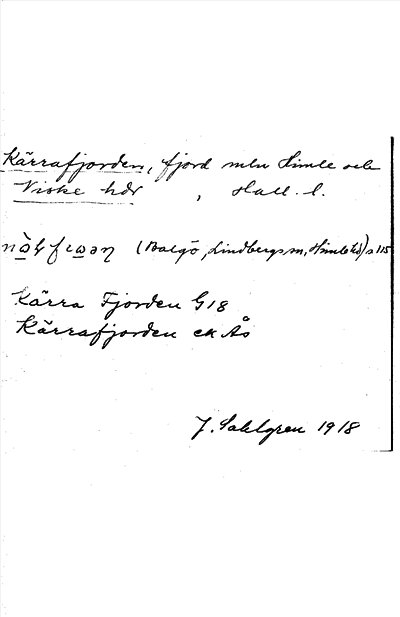 Kärrafjorden, fjord mln Himle och
Viske hdr , Hall. l.
(Balgö, Lindbergs sn, Himle hd) s 115
Kärra Fjorden G18
Kärrafjorden ek Ås
J. Sahlgren 1918